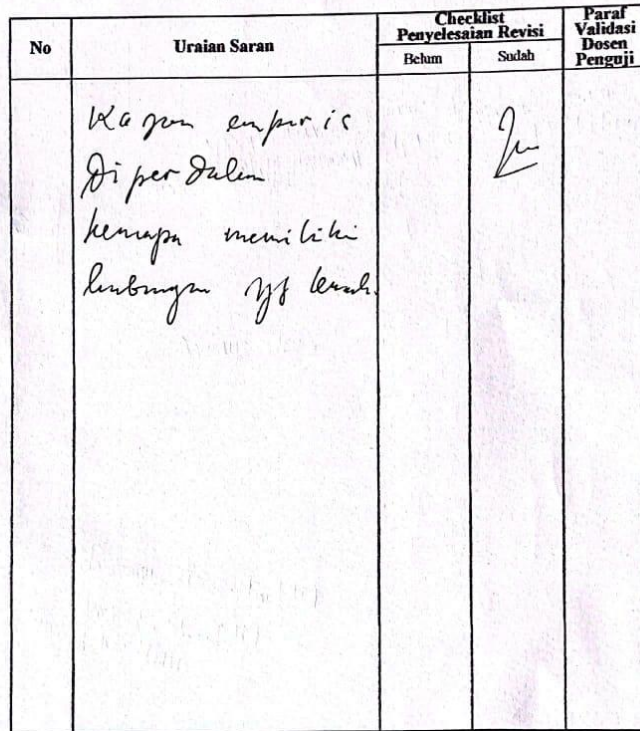 No
Uraian Saran
Checklist
Penyelesaian Revisi
Belum
Sudah
Paraf
Validasi
Dosen
Penguji
Kajian empiris
diperdalam
kenapa memiliki
hubungan yg lemah.